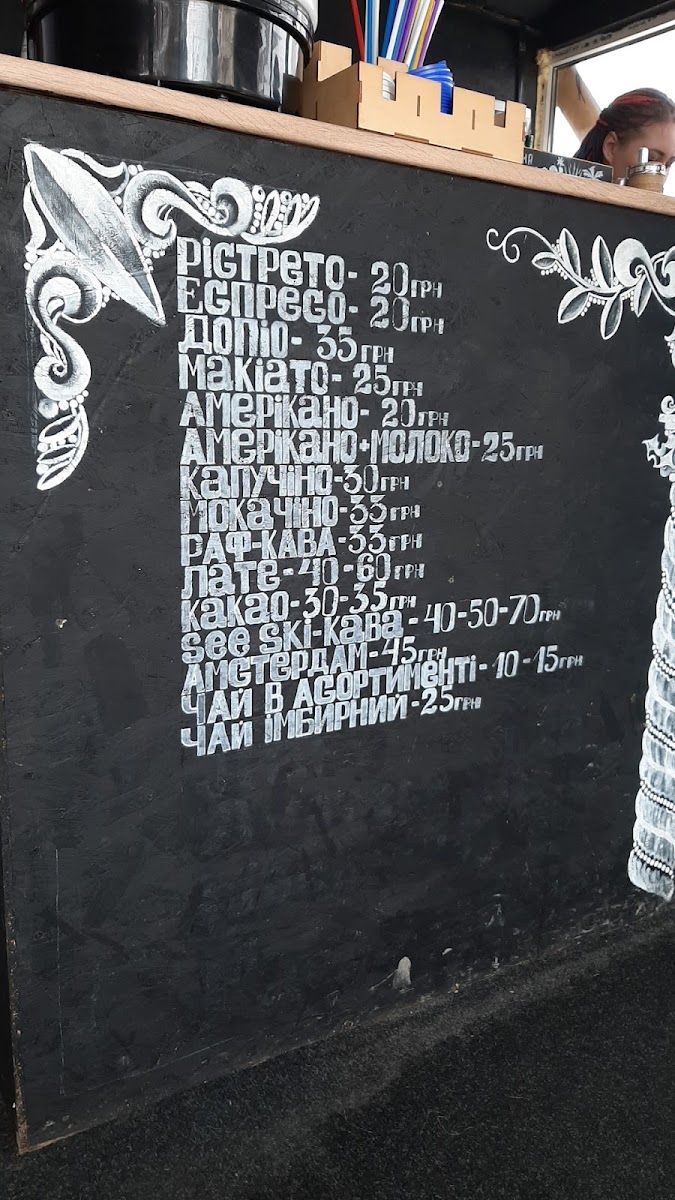 Рістрето- 20грн
Еспресо- 20грн
Допіо- 35грн
Макіато- 25грн
Амерікано- 20грн
Амерікано+молоко-25грн
Капучіно-30грн
Мокачіно-33грн
Раф-кава-33грн
Лате-40-60грн
Какао-30-35грн
See Ski-кава-40-50-70грн
Амстердам-45грн
Чай в асортименті-10-15грн
Чай імбирний-25грн